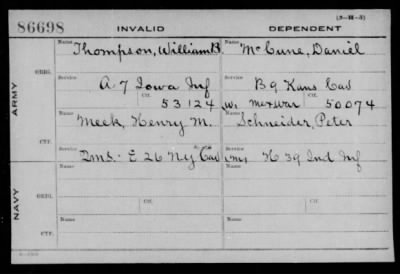 (3-111-5)
86698 INVALID DEPENDENT
Name Name
Thompson, William B. McCune, Daniel
ORIG.
Service Service
A 7 Iowa Inf B 9 Kans Cav
Ctf. Ctf.
53124 W, Mex war 50074
ARMY
Name Name
Meek, Henry M. Schneider, Peter
CTF.
Service Service
Qms. E 26 NY Cav H 39 Ind Inf
Name Name
ORIG.
Service Ctf. Service Ctf.
NAVY
Name Name
CTF.
Service Service